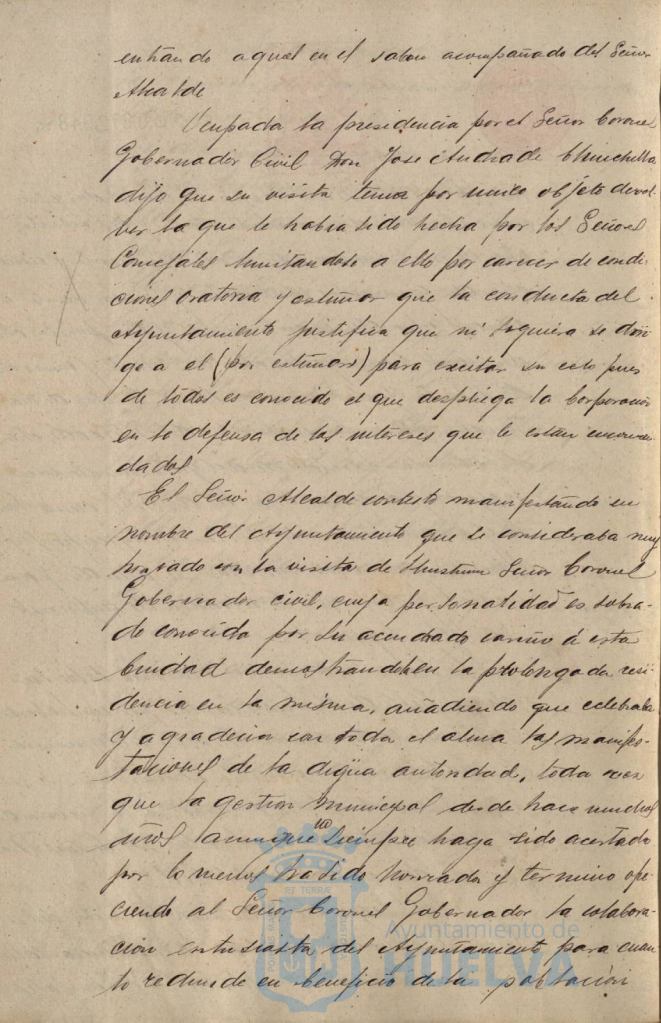 entrando aquel en el salon acompañado del Señor
Alcalde
Ocupada la presidencia por el Señor Coronel
Gobernador Civil Don Jose Andrade Chinchilla
dijo que su visita tenia por unico objeto devol-
ver la que le habia sido hecha por los Señores
Concejales limitandose a ello por carecer de condi-
ciones oratoria y estimar que la conducta del
Ayuntamiento justifica que ni siquiera se diri-
ga a el (por estimar) para excitar su celo pues
de todos es conocido el que despliega la Corporación
en la defensa de los intereses que le estan encomen-
dados
El Señor Alcalde contesto manifestando en
nombre del Ayuntamiento que se consideraba muy
honrado con la visita de Señor Coronel
Gobernador civil, cuya personalidad es sobra-
do conocida por su acendrado cariño á esta
Ciudad la prolongada resi-
dencia en la misma, añadiendo que celebraba
y agradecia con toda el alma las manifes-
taciones de la digna autoridad, toda vez
que la gestion municipal desde hace muchos
años aunque no siempre haya sido acertada
por lo menos ha sido honrada y termino ofre-
ciendo al Señor Coronel Gobernador la colabora-
cion entusiasta del Ayuntamiento para cuan-
to redunde en beneficio de la poblacion
Ayuntamiento de
HUELVA